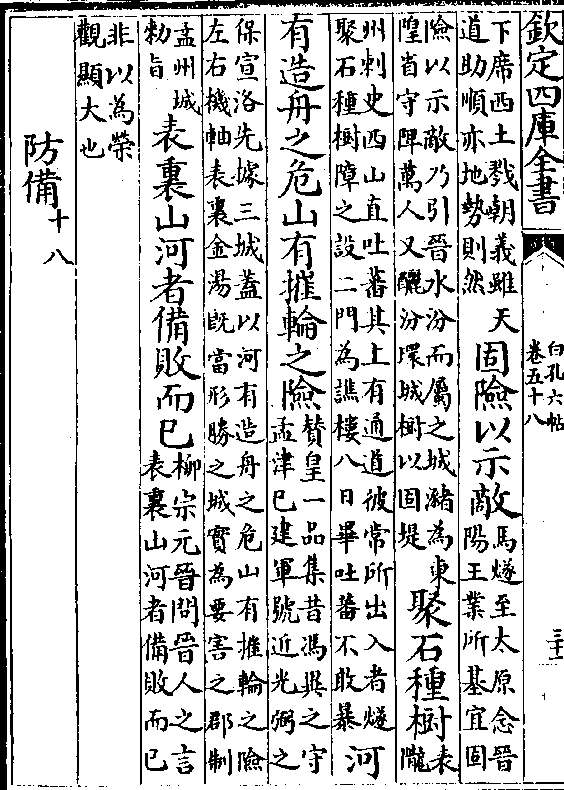 欽定四庫全書
白孔六帖
卷五十八
三十一
下席西土戮朝義雖天
道助順亦地勢則然
固險以示敵
馬燧至太原念晉
陽王業所基宜固
險以示敵乃引晉水汾而屬之城瀦為東
隍省守陴萬人又釃汾環城樹以固堤
聚石種樹
表
隴
州刺史西山直吐蕃其上有通道彼常所出入者燧
聚石種樹障之設二門為譙樓八日畢吐蕃不敢暴
河
有造舟之危山有摧輪之險
贊皇一品集昔馮異之守
孟津已建軍號近光弼之
保宣洛先據三城蓋以河有造舟之危山有摧輪之險
左右機軸表裏金湯旣當形勝之城實為要害之郡制
孟州城
勑旨
表裏山河者備敗而已
柳宗元晉問晉人之言
表裏山河者備敗而已
非以為榮
觀顯大也
防備十八